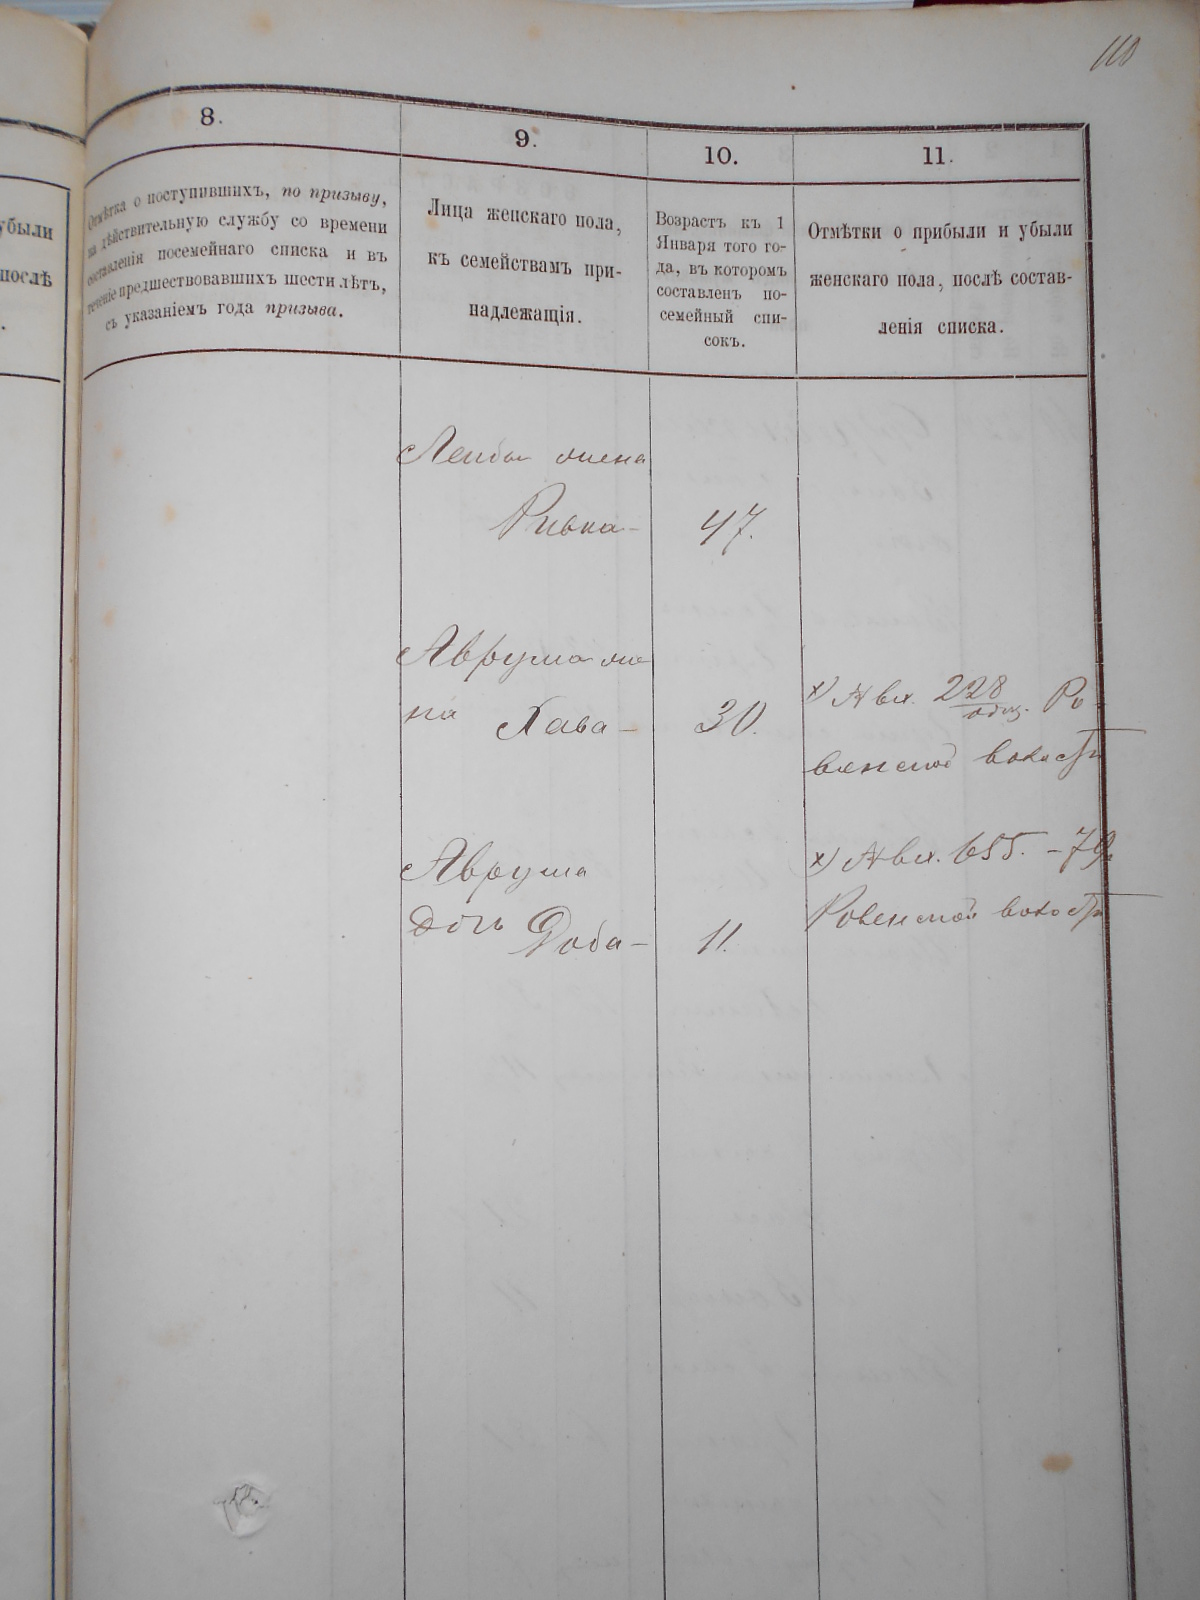 110
убыли
послѣ
8.
Отмѣтка о поступившихъ, по призыву,
на дѣйствительную службу со времени
составленія посемейнаго списка и въ
теченіе предшествовавшихъ шести лѣтъ,
съ указаніемъ года призыва.
9.
Лица женскаго пола,
къ семействамъ при-
надлежащія.
10.
Возрастъ къ 1
Января того го-
да, въ которомъ
составленъ по-
семейный спи-
сокъ.
11.
Отмѣтки о прибыли и убыли
женскаго пола, послѣ состав-
ленія списка.
Лейбы жена
Ривка — 47.
Аврума же
на Хава — 30.
х) № вх. 228 Ро-
венской волости
Аврума
дочь Доба — 11.
х) № вх. 655. - 79.
Ровенской волости